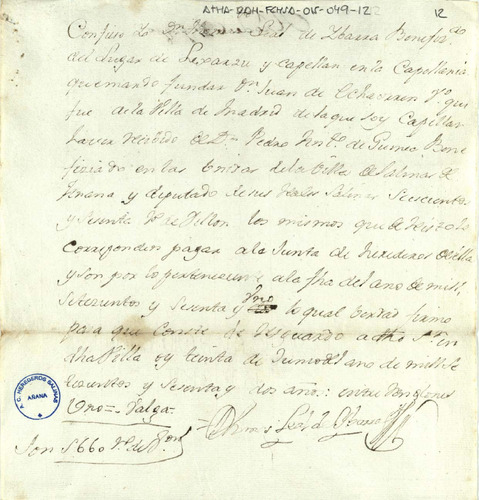 ATHA-DAH-FCHSA-015-049-12
12
Confieso Yo Dn Thomas Saez de Ybarra Benefdo
del Lugar de Lexarzu y capellan en la Capellania
que mando fundar Dn Juan de Echavarri Vo que
fue de la Villa de Madrid de la que soy Capellan
haver recivido de Dn Pedro Anto de Guinea Bene
fiziado en las Enttas de la Villa de Salinas de
Anana y diputado de sus Reales Salinas Seiscientos
y Sesenta Rs de Vellon los mismos que de rezivo
corresponden pagar a la Junta de Herederos de ella
y son por lo perteneciente a la dha del ano de mill
Setezientos y Sesenta y Uno lo qual verdad firmo
para que Conste de resguardo a dho Sr en
dha Villa oy treinta de Junio del ano de mill Se
tezientos y Sesenta y dos años: entre Renglones
Uno = Valga =
Thomas Saez de Ybarra
Son 660 Rs de Von
A.C. HEREDEROS SALINAS
AÑANA